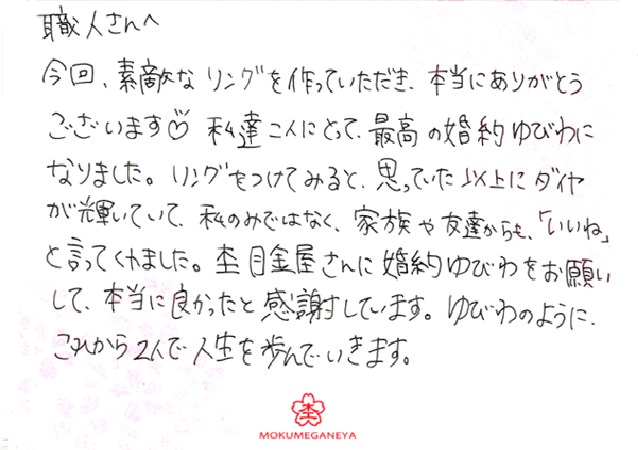 職人さんへ
今回、素敵な リングを作っていただき、本当にありがとう
ございます♡ 私達二人にとって、最高の婚約ゆびわに
なりました。リングをつけてみると、思っていた以上にダイヤ
が輝いていて、私のみではなく、家族や友達からも、「いいね」
と言ってくれました。杢目金屋さんに婚約ゆびわをお願い
して、本当に良かったと感謝しています。ゆびわのように、
これから2人で人生を歩んでいきます。
杢
MOKUMEGANEYA